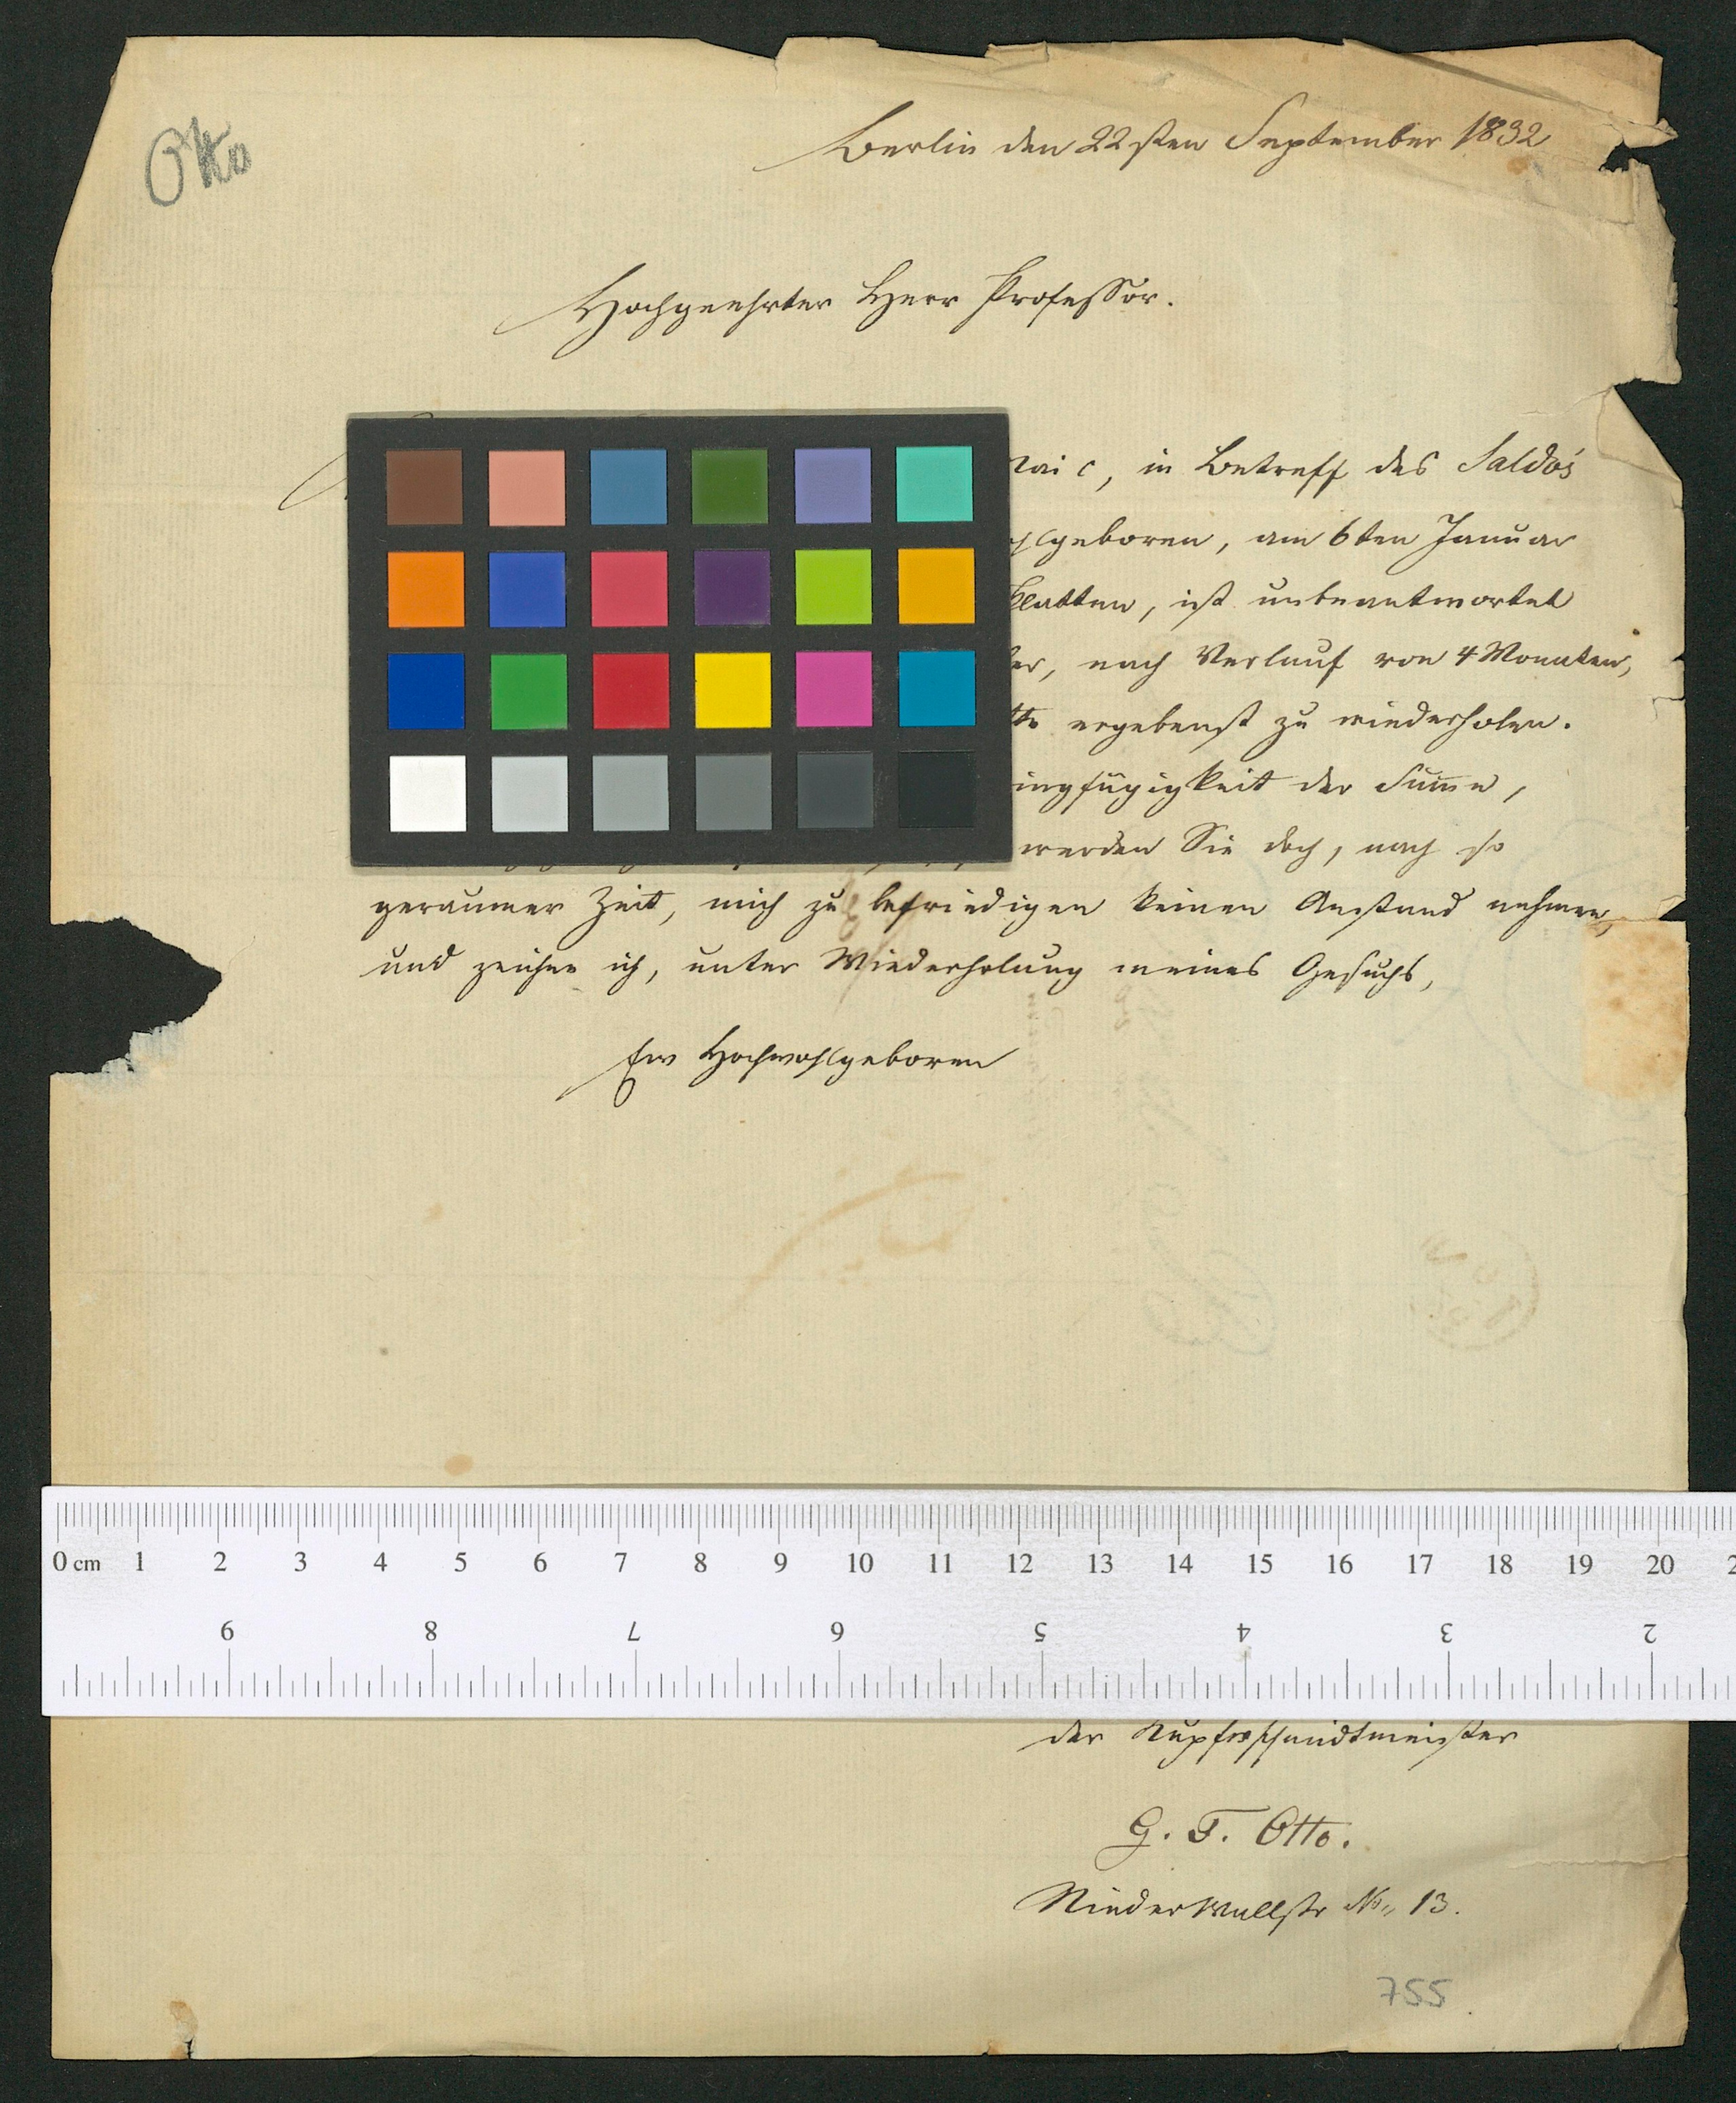 Otto
Berlin den 22sten September 1832
Hochgeehrter Herr Professor.
Mai c, in Betreff des Saldo's
geboren, am 6ten Januar
Platten, ist unbeantwortet
nach Verlauf von 4 Monaten,
ergebenst zu wiederholen.
ingfügigkeit der Summe,
werden Sie doch, nach so
geraumer Zeit, mich zu befriedigen keinen Anstand nehmen,
und zeichne ich, unter Wiederholung meines Gesuchs,
Ew Hochwohlgeboren
0 cm 1 2 3 4 5 6 7 8 9 10 11 12 13 14 15 16 17 18 19 20
9 8 7 6 5 4 3 2
der Kupferschmidtmeister
G. F. Otto.
Niederwallstr No. 13.
755